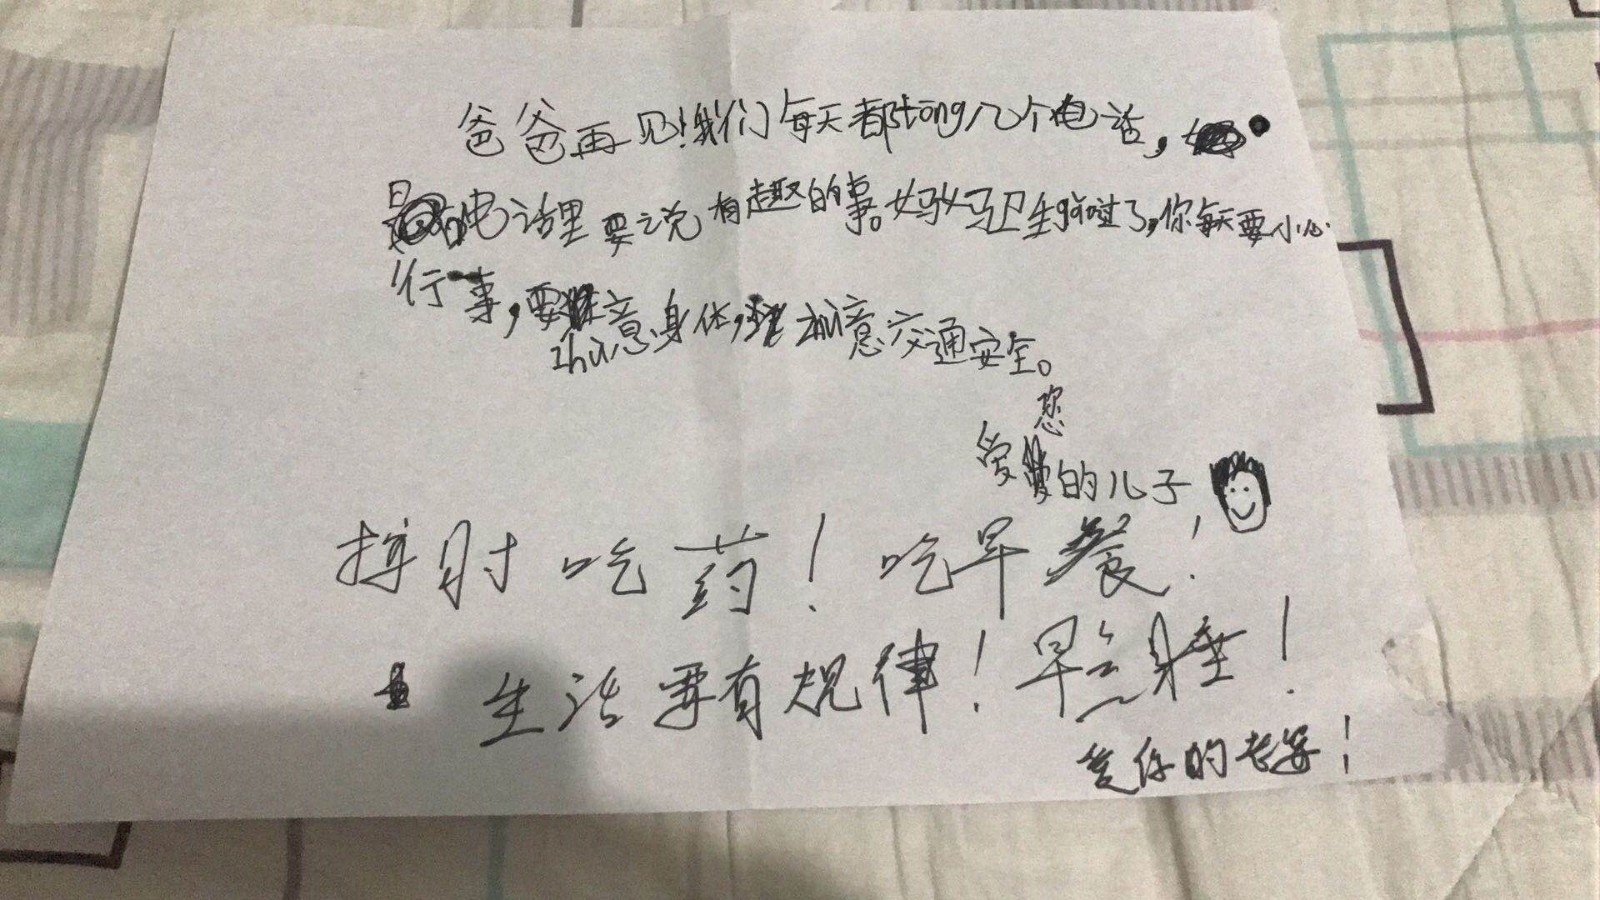 爸爸再见!我们每天都tōng几个电话,
电话里要说有趣的事。妈妈卫生gǎo过了,你每天要小心
行事,要zhù意身体,zhù意交通安全。
爱您的儿子
按时吃药!吃早餐!
生活要有规律!早点睡!
爱你的老婆!